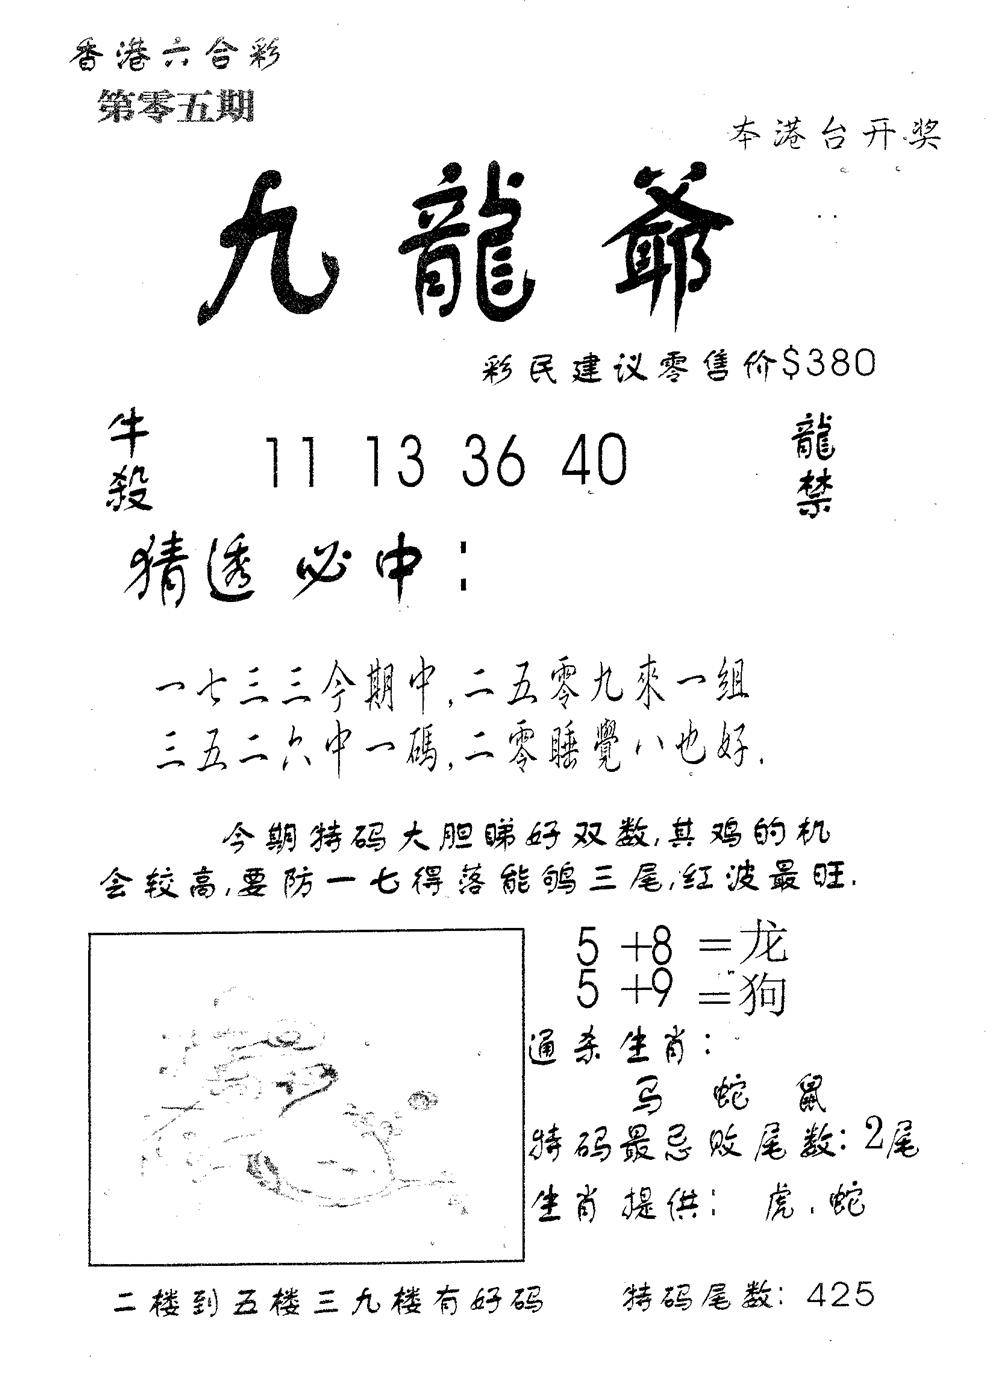 香港六合彩
第零五期
本港台开奖
九龍爺
彩民建议零售价$380
牛殺 11 13 36 40 龍禁
猜透必中：
一七三三今期中,二五零九來一组
三五二六中一碼,二零睡覺八也好.
今期特码大胆睇好双数,其鸡的机
会较高,要防一七得落能鸲三尾,红波最旺.
5+8=龙
5+9=狗
通杀生肖：
马 蛇 鼠
特码最忌败尾数：2尾
生肖提供：虎.蛇
二楼到五楼三九楼有好码 特码尾数：425